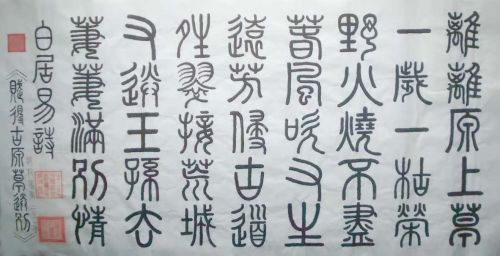 離離原上草
一歲一枯榮
野火燒不盡
春風吹又生
遠芳侵古道
晴翠接荒城
又送王孫去
萋萋滿別情
白居易詩
《賦得古原草送別》